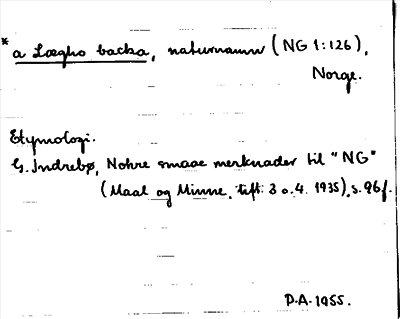 * a Lægho backa, naturnamn (NG 1:126),
Norge.
Etymologi.
G. Indrebø, Nokre smaae merknader til "NG"
(Maal og Minne, tift. 3 o. 4. 1935), s. 96 f.
P.A. 1955.